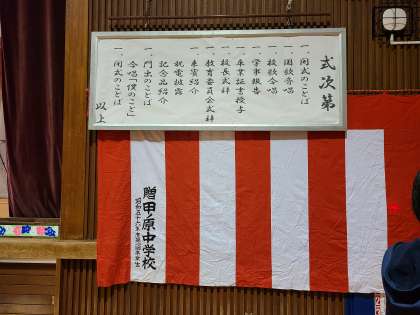 式次第
一、開式のことば
一、国歌斉唱
一、校歌合唱
一、学事報告
一、卒業証書授与
一、校長式辞
一、教育委員会式辞
一、来賓紹介
祝電披露
記念品紹介
一、門出のことば
合唱「僕のこと」
一、閉式のことば
以上
贈田ノ原中学校